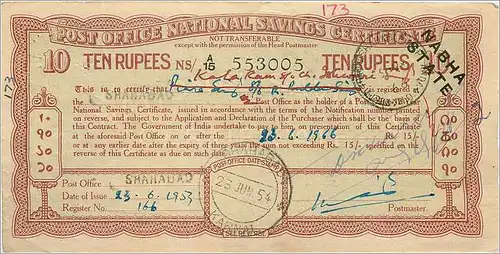 173
POST OFFICE NATIONAL SAVINGS CERTIFICATE
NOT TRANSFERABLE
except with the permission of the Head Postmaster
10 TEN RUPEES NS/ A/15 553005 TEN RUPEES
NABHA STATE
173
This is to certify that
SHAHABAD
is registered at
Post Office as the holder of a Post
National Savings Certificate, issued in accordance with the terms of the Notification
on reverse, and subject to the Application and Declaration of Purchaser which shall be the basis of
this Contract. The Government of India undertake to pay to him, on presentation of this Certificate
at the aforesaid Post Office on or after 23.6.1966 Rs. 15/-
or at any earlier date after the expiry of three years the sum not exceeding Rs. 15/- specified on the
reverse of this Certificate as due on such date.
Post Office SHAHABAD
Date of Issue 23-6-1953
Register No. 166
POST OFFICE DATE-STAMP
SHAHABAD
23 JUN. 54
KARNAL
SEE REVERSE
Postmaster.